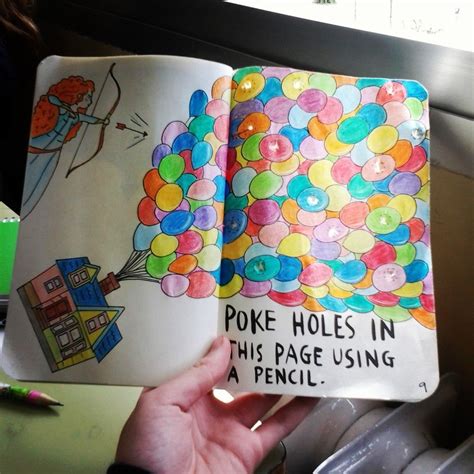 POKE HOLES IN
THIS PAGE USING
A PENCIL.
9